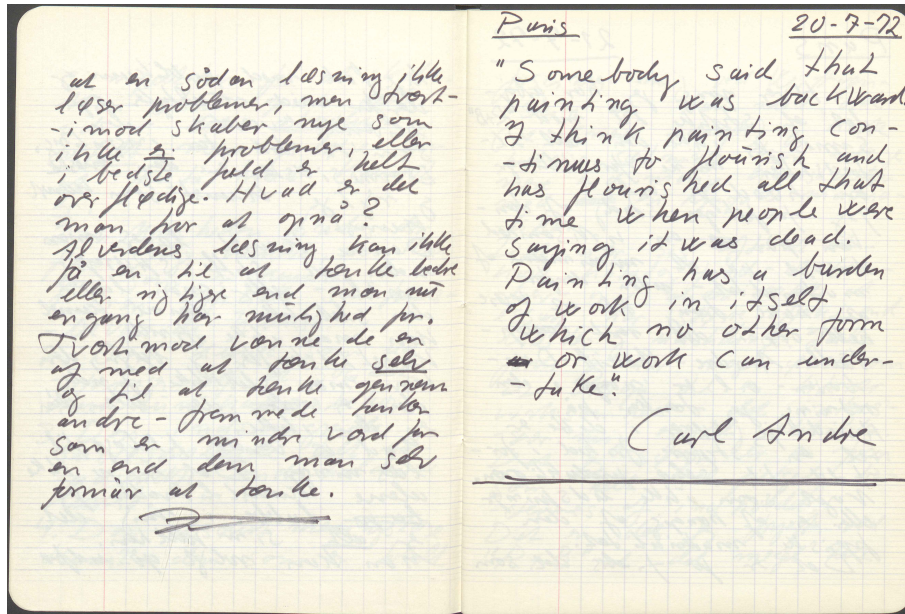 at en sådan læsning ikke
løser problemer, men tvært-
-imod skaber nye som
ikke er problemer, eller
i bedste fald er helt
overflødige. Hvad er det
man har at opnå?
Alverdens læsning kan ikke
få en til at tænke bedre
eller rigtigere end man nu
engang har mulighed for.
Tværtimod vænne de en
af med at tænke selv
og til at tænke gennem
andre - fremmede tanker
som er mindre værd for
en end dem man selv
formår at tænke.
Paris 20-7-72
"Somebody said that
painting was backward
I think painting con-
-tinues to flourish and
has flourished all that
time when people were
saying it was dead.
Painting has a burden
of work in itself
which no other form
or work can under-
-take".
Carl Andre